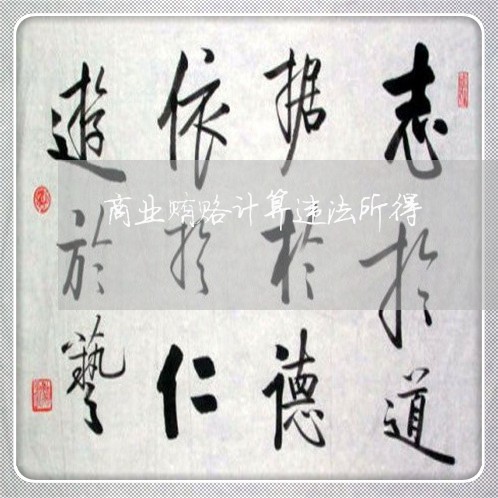 志於道
据於德
依於仁
遊於藝
商业贿赂计算违法所得